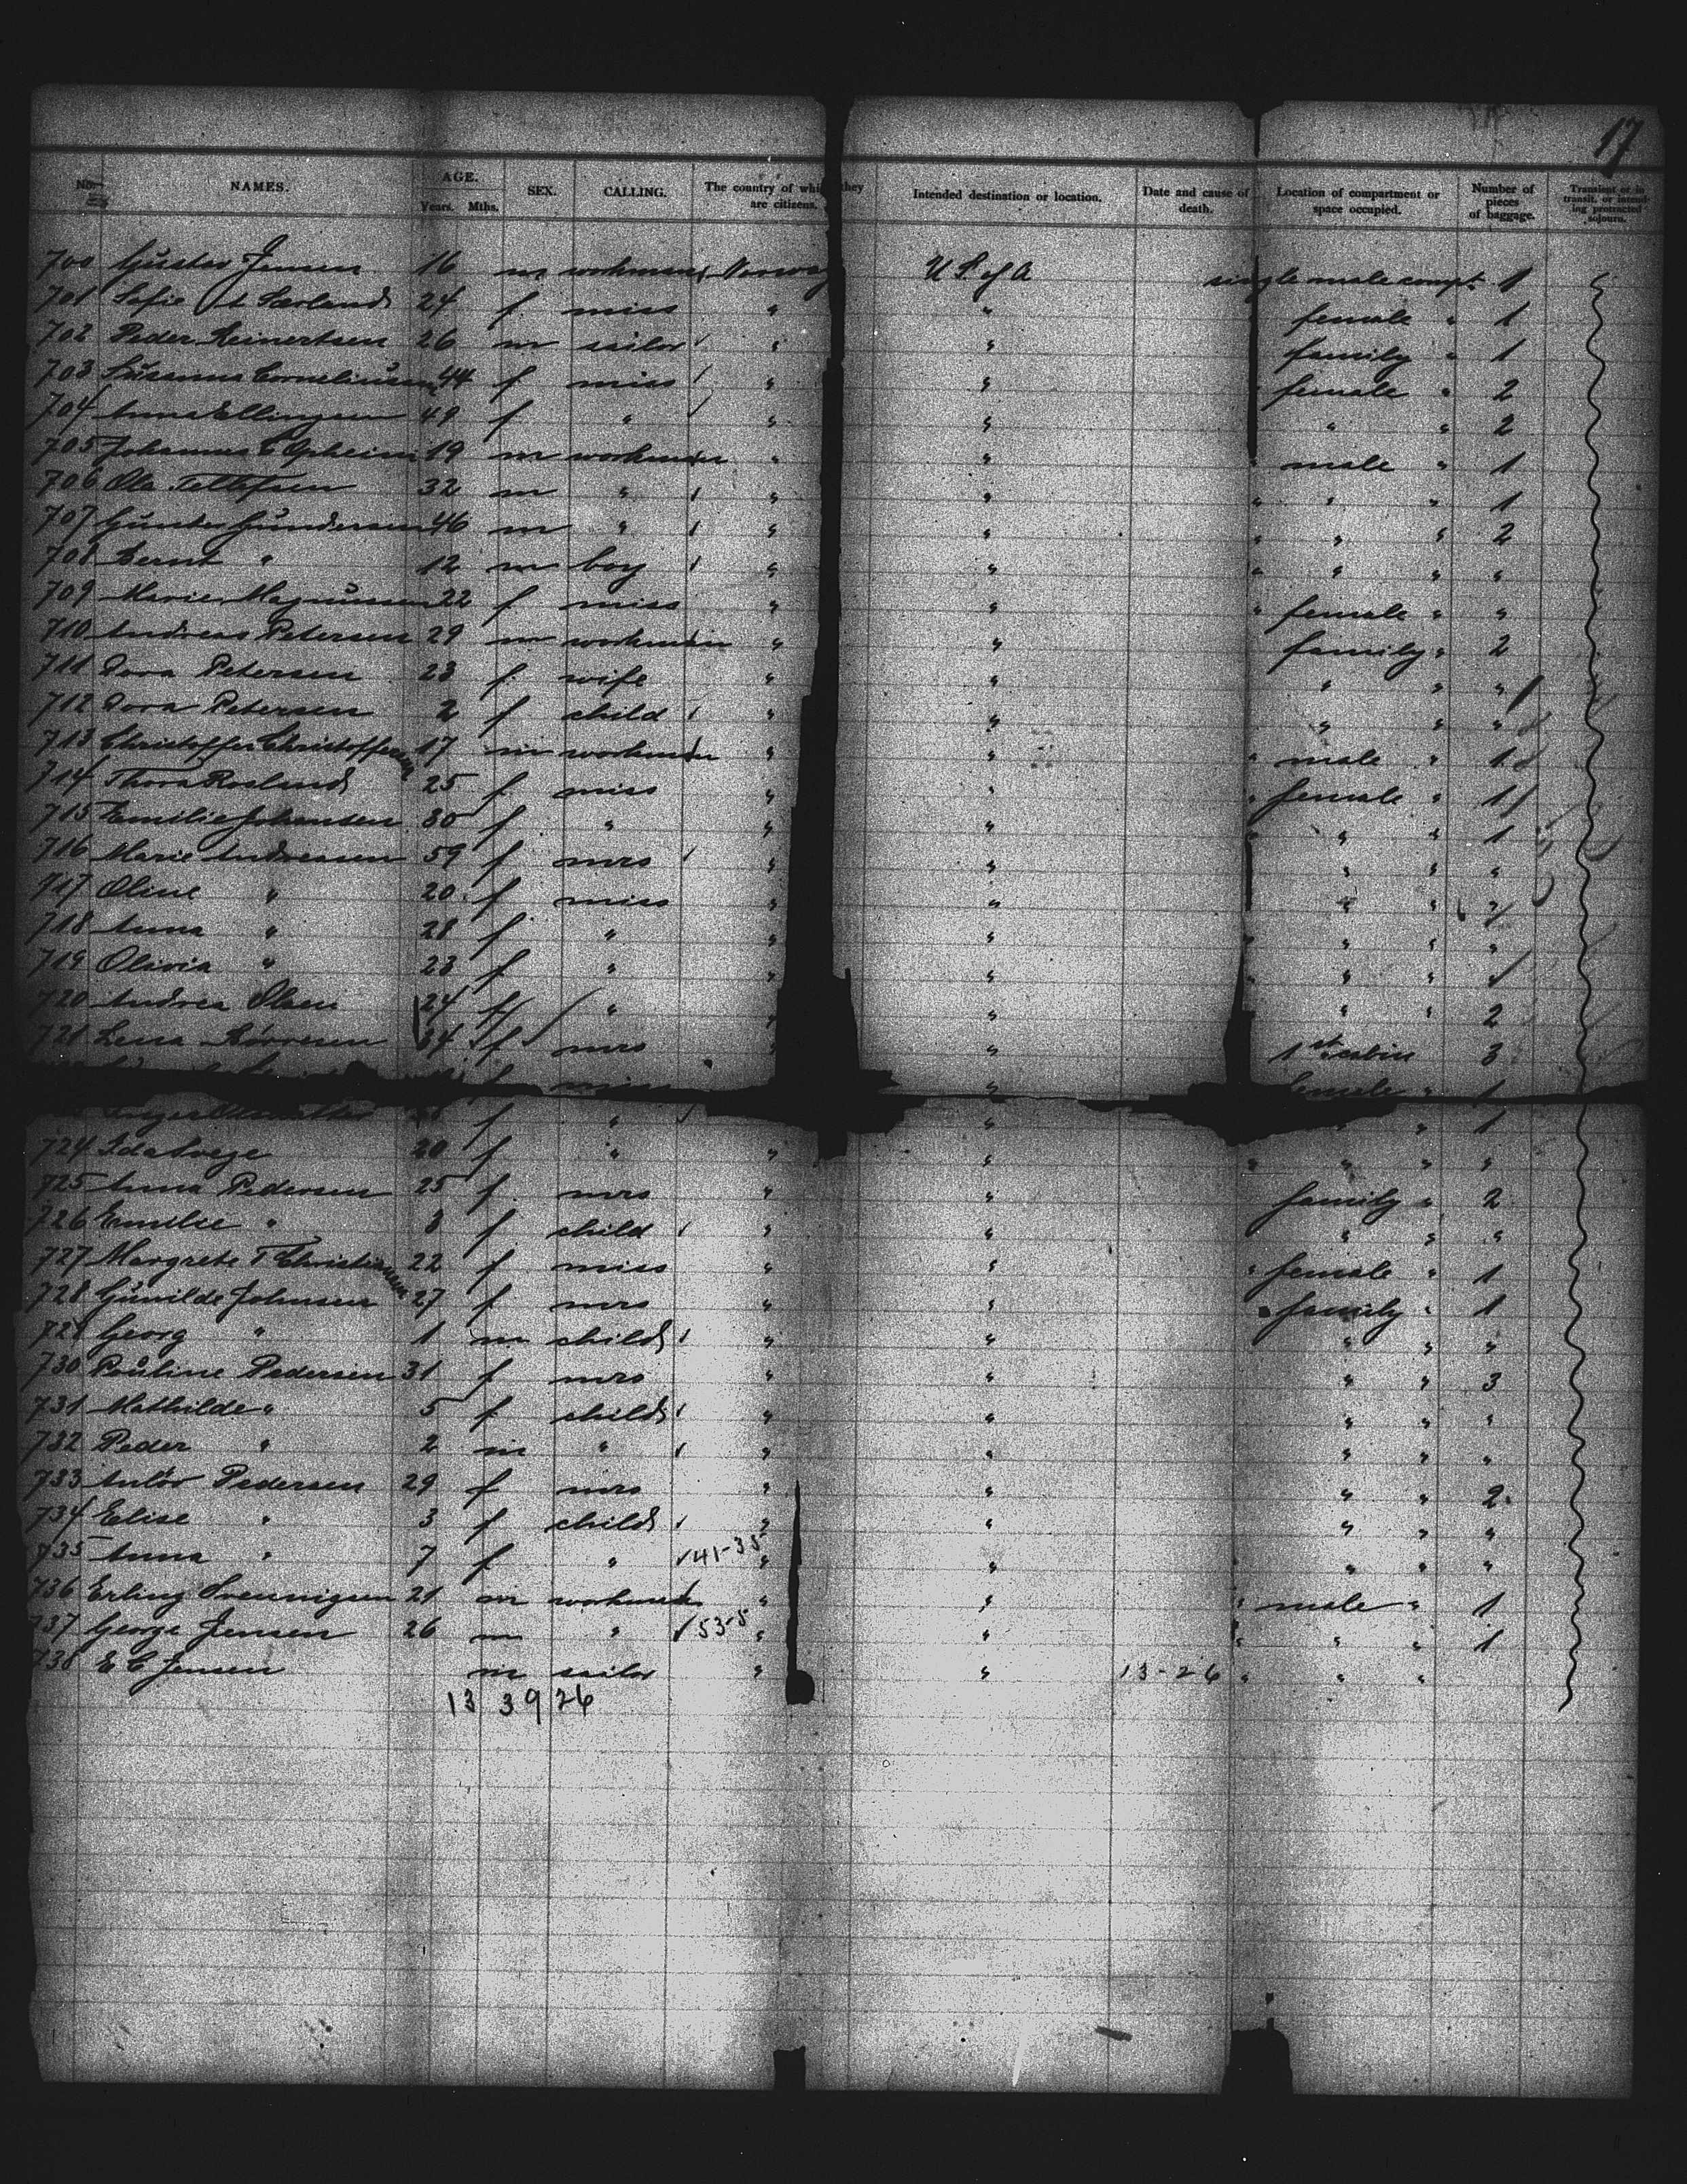 17
No. NAMES. AGE. Years. Mths. SEX. CALLING. The country of whi they are citizens. Intended destination or location. Date and cause of death. Location of compartment or space occupied. Number of pieces of baggage. Transient or in transit, or intending protracted sojourn.
700 Gustav Jensen 16 m workman Norway U S of A single male compt. 1
701 Sofie 24 f miss " " female " 1
702 Peder Reinertsen 26 m sailor " " family " 1
703 Corneliussen 44 f miss " " female " 2
704 Anna Ellingsen 49 f " " " " " 2
705 Johannes Opheim 19 m workman " " " male " 1
706 Ole Tellefsen 32 m " " " " " " 1
707 Gunder Gundersen 46 m " " " " " " 2
708 Bernt " 12 m boy " " " " " "
709 Marie Magnussen 22 f miss " " " female " "
710 Andreas Petersen 29 m workman " " family " 2
711 Dora Petersen 23 f wife " " " " "
712 Dora Petersen 2 f child " " " " "
713 Christoffer Christoffersen 17 m workman " " " male " 1
714 Thora Rosland 25 f miss " " " female " 1
715 Emilie Johansen 30 f " " " " " " 1
716 Marie Andreasen 59 f mrs " " " " "
717 Oline " 20 f miss " " " "
718 Anna " 28 f " " " " " "
719 Olivia " 23 f " " " " " "
720 Andrea Olsen 24 f " " " " " 2
721 Lena 34 f mrs " " 1st cabin 3
f miss " female " 1
f " " " " 1
724 Ida 20 f " " " " " " "
725 Anna Pedersen 25 f mrs " " family " 2
726 Emilie " 3 f child " " " " "
727 Margrete T Christiansen 22 f miss " " " female " 1
728 Gunilde Johnsen 27 f mrs " " " family " 1
729 Georg " 1 m child " " " " "
730 Pauline Pedersen 31 f mrs " " " " 3
731 Mathilde " 5 f child " " " " "
732 Peder " 2 m " " " " " "
733 Pedersen 29 f mrs " " " " 2
734 Elise " 3 f child " " " " "
735 Anna " 7 f " 41-35 " " " " "
736 Erling 21 m workman " " " male " 1
737 George Jensen 26 m " 53-5 " " " " " 1
738 E C Jensen m sailor " " 13-26 " " "
13 39 26